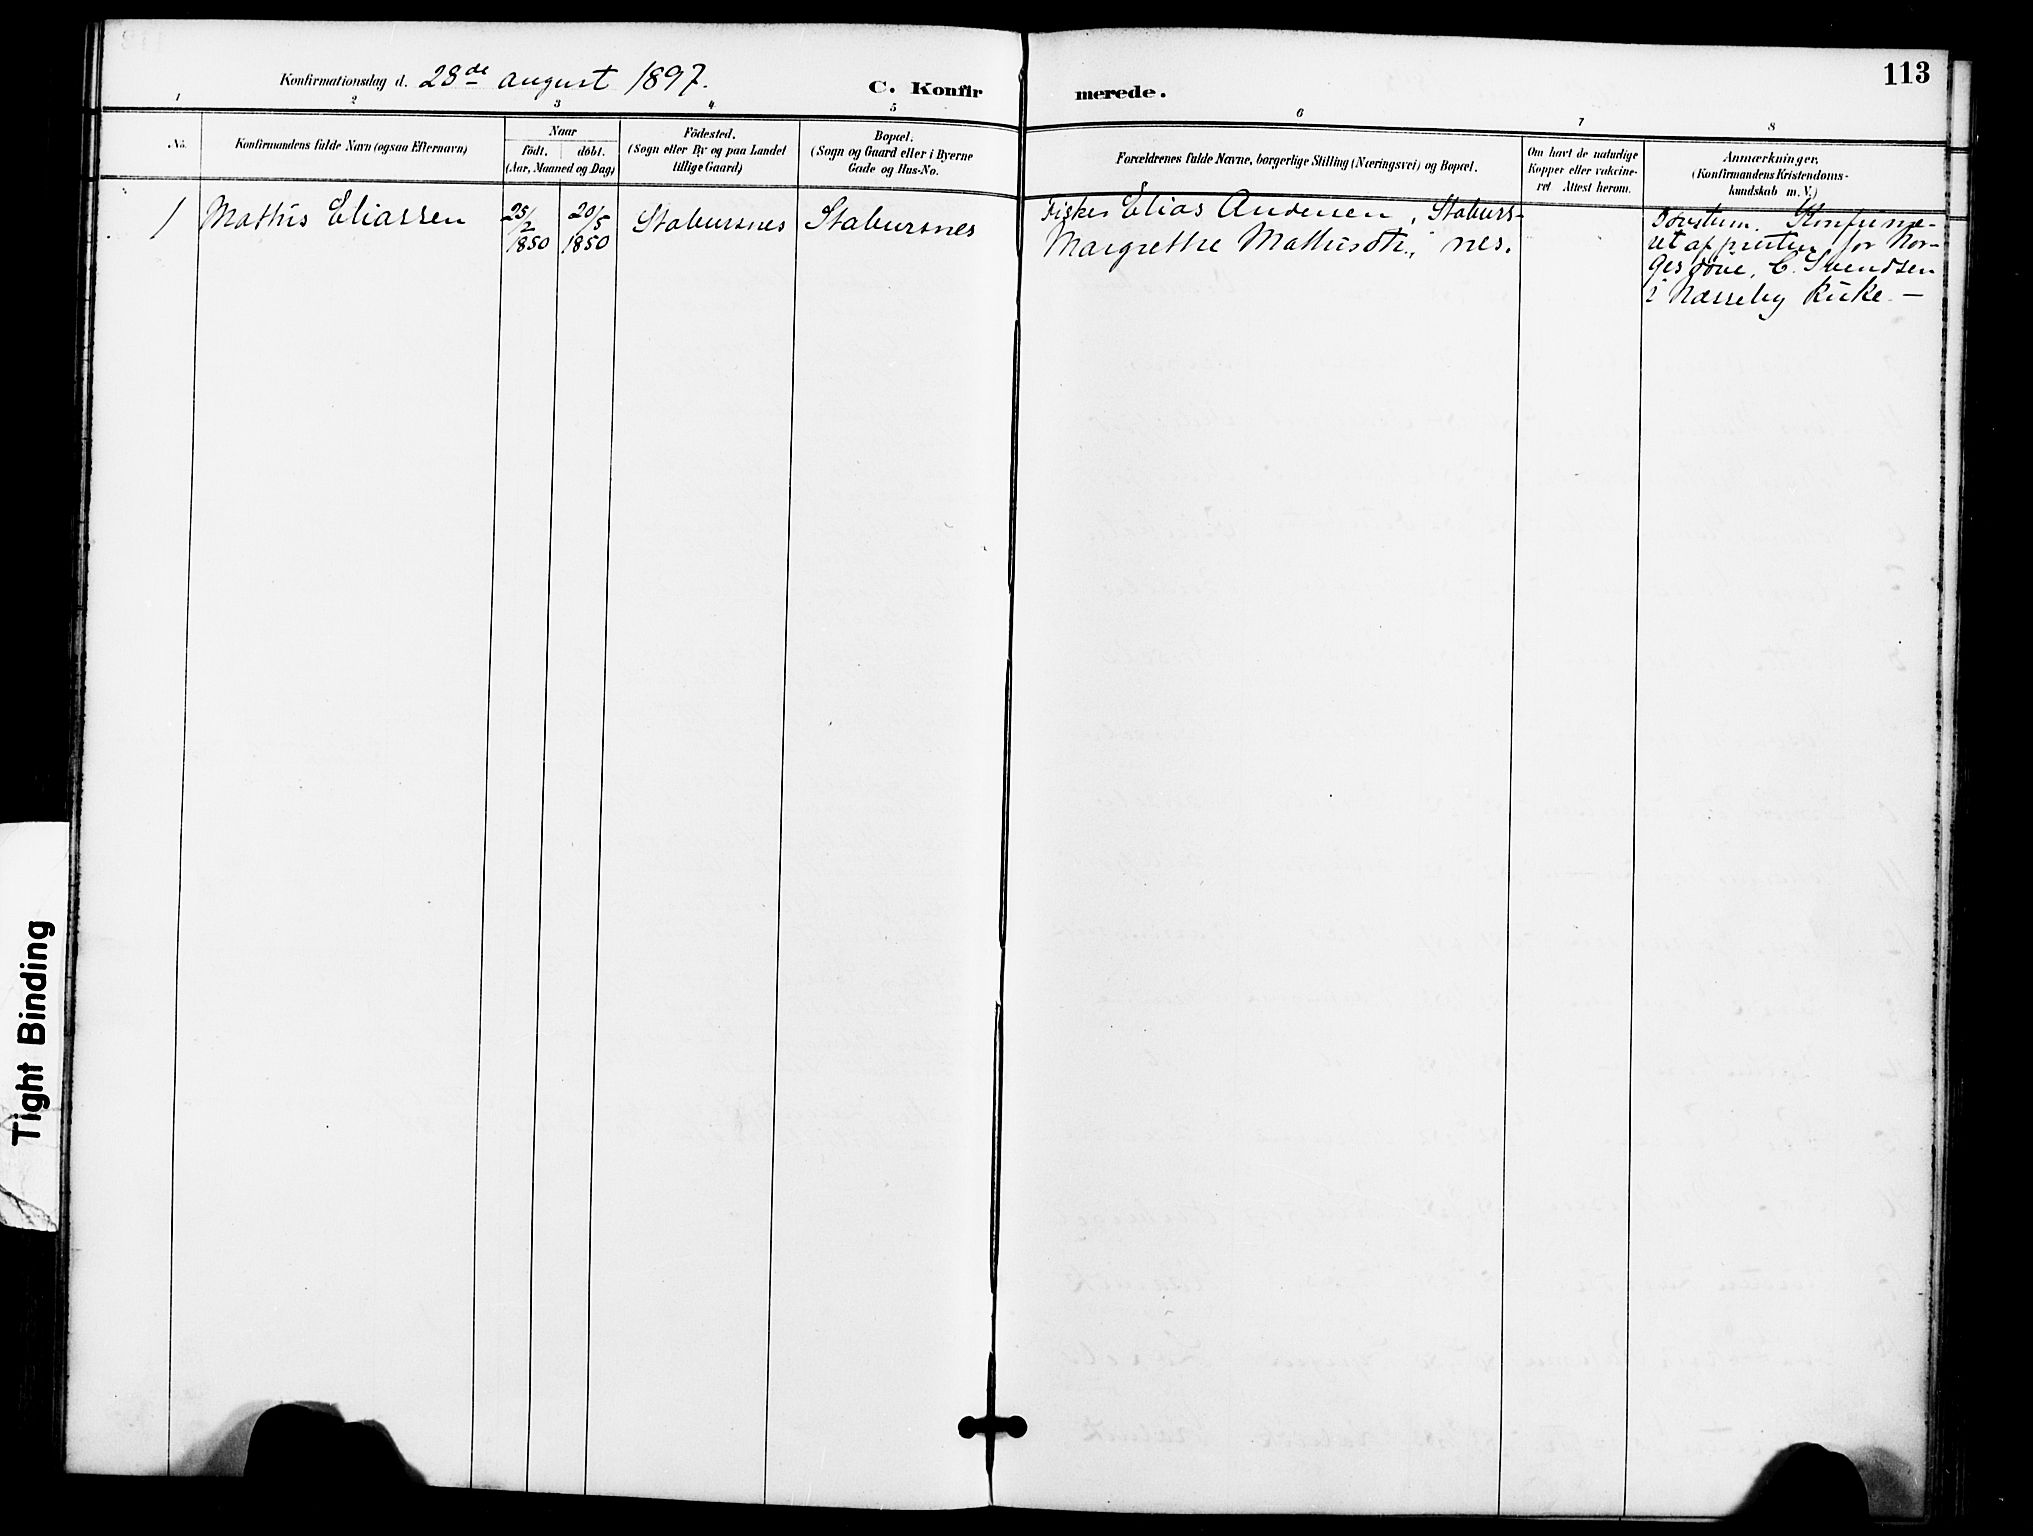 113
Konfirmationsdag d. 28de august 1897.
C. Konfir merede.
1 2 3 4 5 6 7 8
No.
Konfirmandens fulde Navn (ogsaa Efternavn)
Naar
födt. döbt.
(Aar, Maaned og Dag)
Födested.
(Sogn eller By og paa Landet
tillige Gaard)
Bopæl.
(Sogn og Gaard eller i Byerne
Gade og Hus-No.
Forældrenes fulde Navne, borgerlige Stilling (Næringsvei) og Bopæl.
Om havt de naturlige
Kopper eller vakcine-
ret Attest herom.
Anmærkninger.
(Konfirmandens Kristendoms-
kundskab m. V.)
1 Mathis Eliassen
25/2 1850
20/5 1850
Stabursnes
Stabursnes
Fisker Elias Andersen, Staburs-
Margrethe Mathisdtr., nes.
Døvstum. Konfirme-
ret af presten for Nor-
ges døve, C. Svendsen
i Næsseby kirke. —
Tight Binding